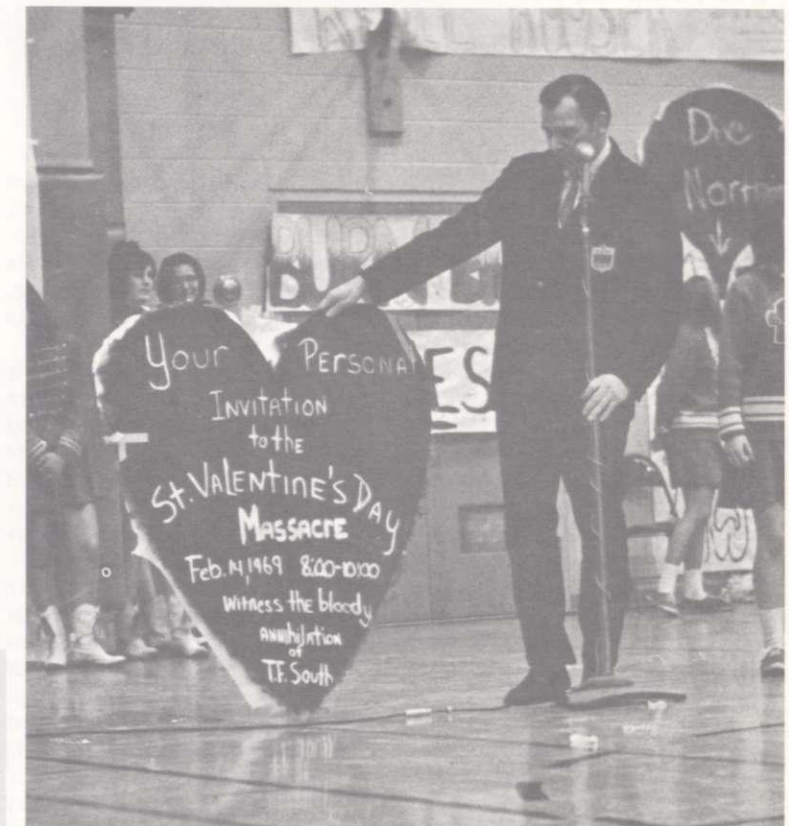 Die
Your Personal
Invitation
to the
St. Valentine's Day
Massacre
Feb. 14, 1969 8:00-10:00
witness the bloody
annihilation
of
T.F. South
ES